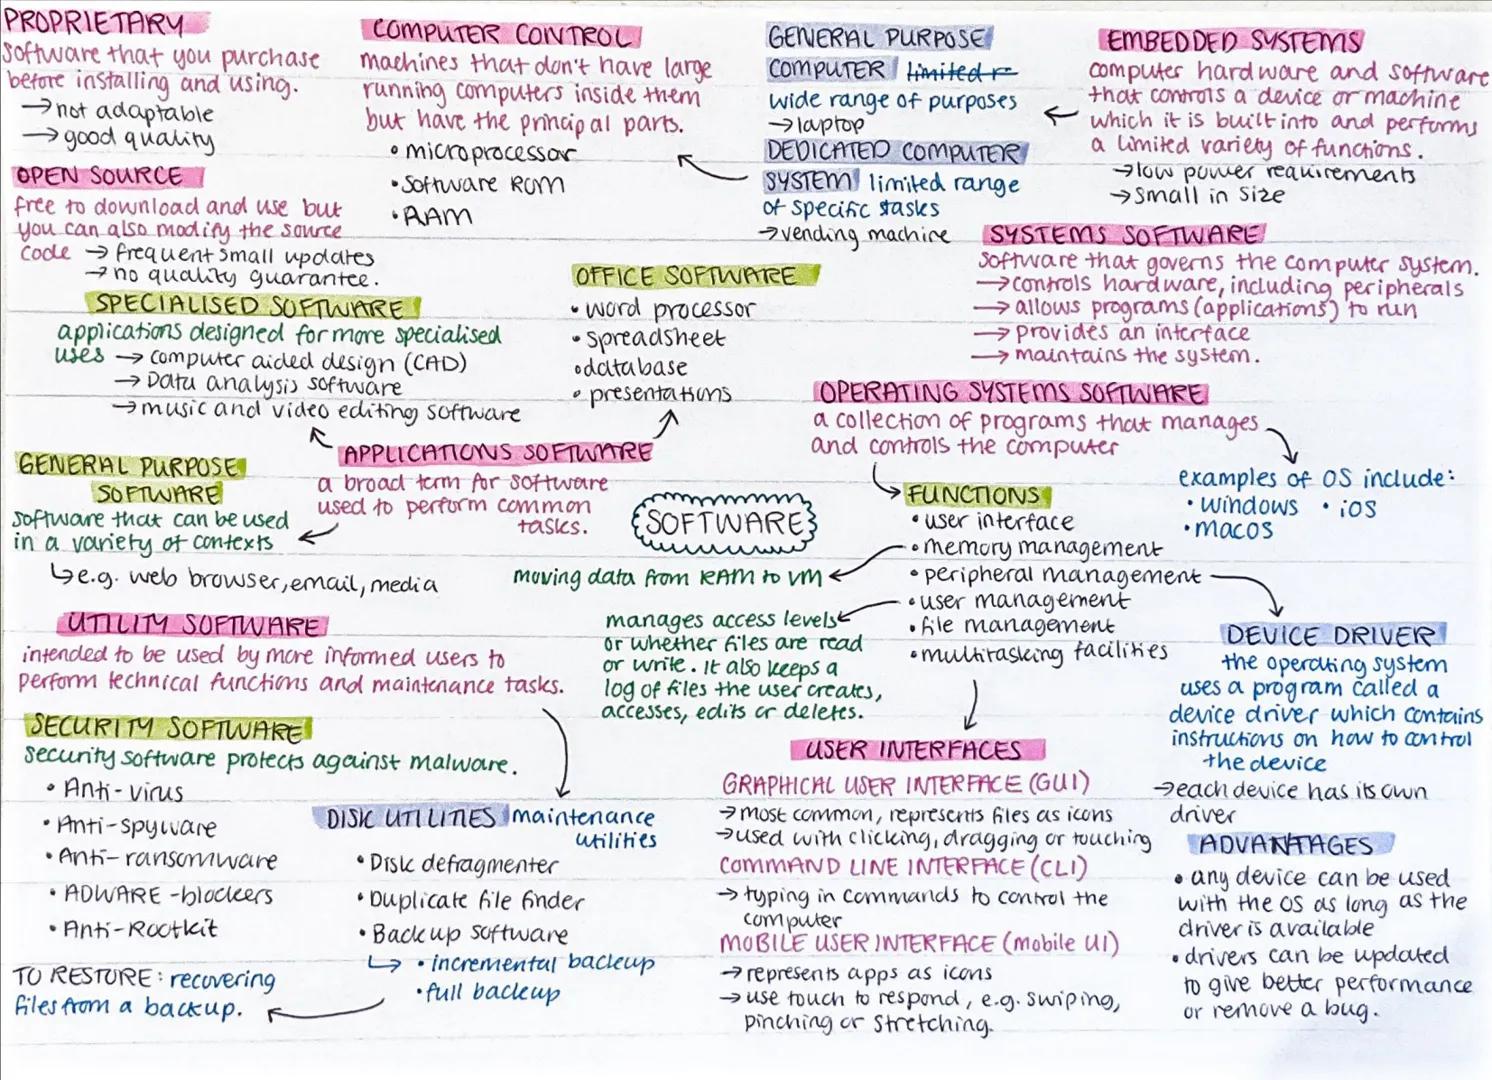 PROPRIETARY
Software that you purchase
before installing and using.
→ not adaptable
→ good quality
OPEN SOURCE
free to download and use but
you can also modify the source
code → frequent small updates
→ no quality guarantee.
COMPUTER CONTROL
machines that don't have large
running computers inside them
but have the principal parts.
• microprocessor
• Software ROM
• RAM
GENERAL PURPOSE
COMPUTER limited r
wide range of purposes
→ laptop
DEDICATED COMPUTER
SYSTEM limited range
of specific stasks
→ vending machine
EMBEDDED SYSTEMS
computer hardware and software
that controls a device or machine
which it is built into and performs
a limited variety of functions.
→ low power requirements
→ Small in size
SYSTEMS SOFTWARE
Software that governs the computer system.
→ controls hardware, including peripherals
→ allows programs (applications) to run
→ provides an interface
→ maintains the system.
SPECIALISED SOFTWARE
applications designed for more specialised
uses → computer aided design (CAD)
→ Data analysis software
→ music and video editing software
OFFICE SOFTWARE
• word processor
• spreadsheet
• database
• presentations
APPLICATIONS SOFTWARE
a broad term for software
used to perform common
tasks.
GENERAL PURPOSE
SOFTWARE
Software that can be used
in a variety of contexts
↳ e.g. web browser, email, media
SOFTWARE
OPERATING SYSTEMS SOFTWARE
a collection of programs that manages
and controls the computer
examples of OS include:
• windows • iOS
• macos
FUNCTIONS
• user interface
• memory management
• peripheral management
• user management
• file management
• multitasking facilities
moving data from RAM to VM
manages access levels
or whether files are read
or write. It also keeps a
log of files the user creates,
accesses, edits or deletes.
DEVICE DRIVER
the operating system
uses a program called a
device driver which contains
instructions on how to control
the device
→ each device has its own
driver
ADVANTAGES
• any device can be used
with the OS as long as the
driver is available
• drivers can be updated
to give better performance
or remove a bug.
UTILITY SOFTWARE
intended to be used by more informed users to
perform technical functions and maintenance tasks.
SECURITY SOFTWARE
security software protects against malware.
• Anti-virus
• Anti-spyware
• Anti-ransomware
• ADWARE-blockers
• Anti-Rootkit
DISK UTILITIES maintenance
utilities
• Disk defragmenter
• Duplicate file finder
• Back up software
↳ • incremental backup
• full backup
TO RESTORE: recovering
files from a backup.
USER INTERFACES
GRAPHICAL USER INTERFACE (GUI)
→ most common, represents files as icons
→ used with clicking, dragging or touching
COMMAND LINE INTERFACE (CLI)
→ typing in commands to control the
computer
MOBILE USER INTERFACE (mobile UI)
→ represents apps as icons
→ use touch to respond, e.g. swiping,
pinching or stretching.